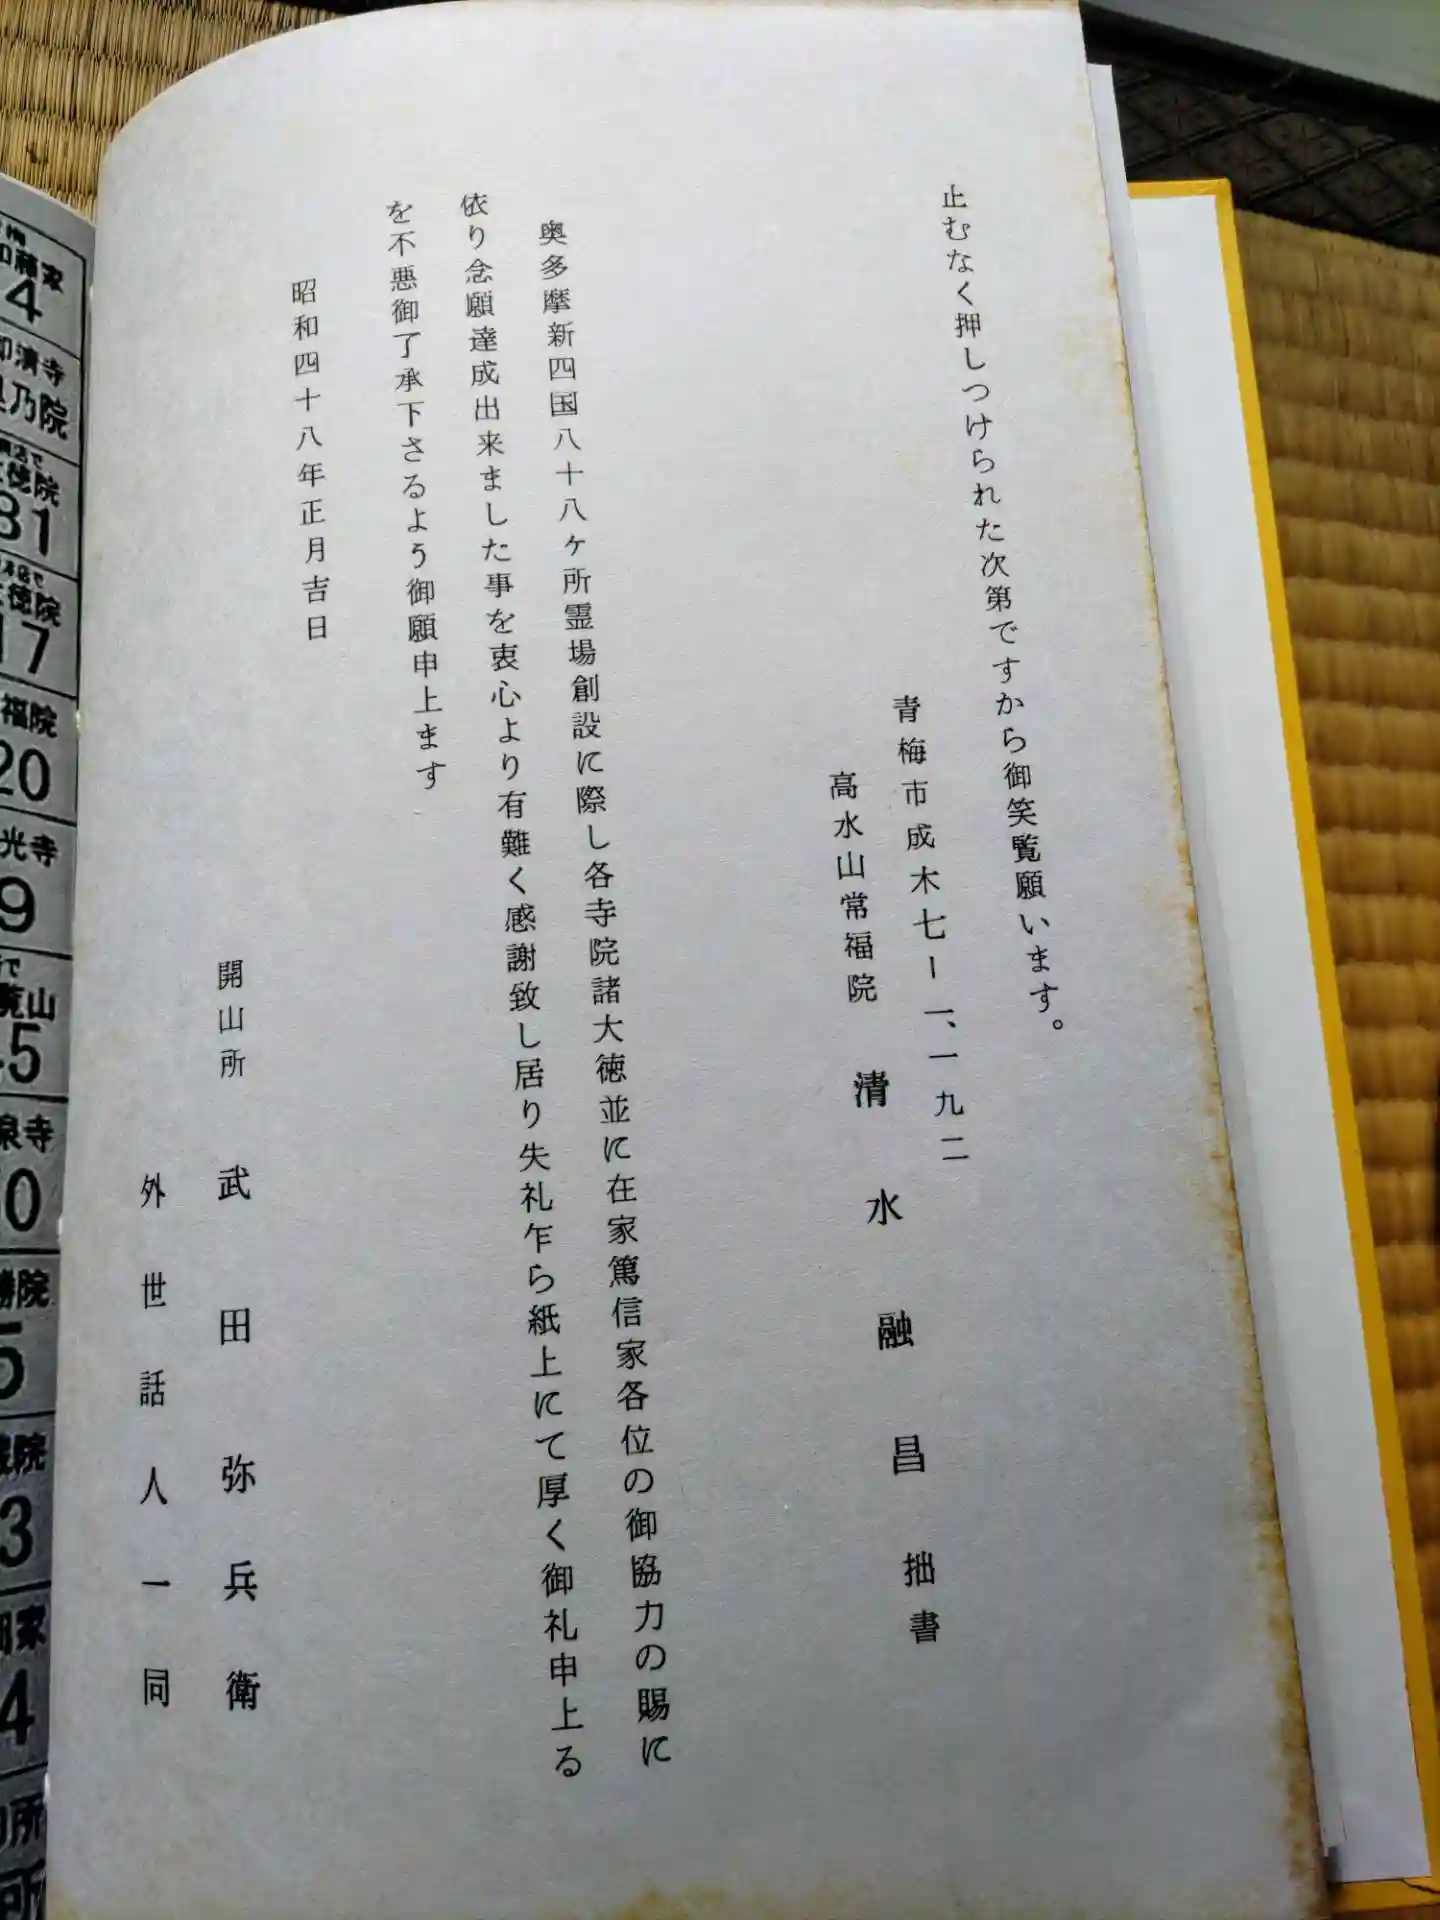 止むなく押しつけられた次第ですから御笑覧願います。
青梅市成木七ー一、一九二
高水山常福院 清水融昌拙書
奥多摩新四国八十八ヶ所霊場創設に際し各寺院諸大徳並に在家篤信家各位の御協力の賜に
依り念願達成出来ました事を衷心より有難く感謝致し居り失礼乍ら紙上にて厚く御礼申上る
を不悪御了承下さるよう御願申上ます
昭和四十八年正月吉日
開山所 武田弥兵衛
外世話人一同
4
乃院
徳院
31
徳院
17
福院
20
光寺
9
山
5
泉寺
0
勝院
5
院
3
家
4
所
所